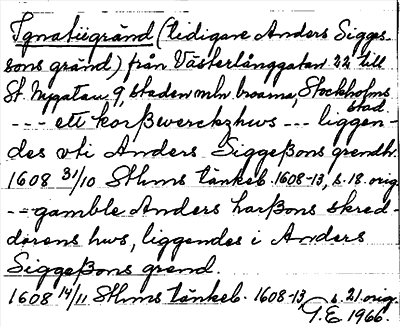 Ignatiigränd (tidigare Anders Sigges-
sons gränd) från Västerlånggatan 22 till
St. Nygatan 9, staden mln broarna, Stockholms
stad.
--- ett korßwerckzhws --- liggen-
des vti Anders Siggeßons grendh.
1608 31/10 Sthms tänkeb. 1608-13, s. 18. orig.
--- gamble Anders harßons skred-
darens hws, liggendes i Anders
Siggeßons grend.
1608 14/11 Sthms tänkeb. 1608-13 s. 21. orig.
T.E. 1966.